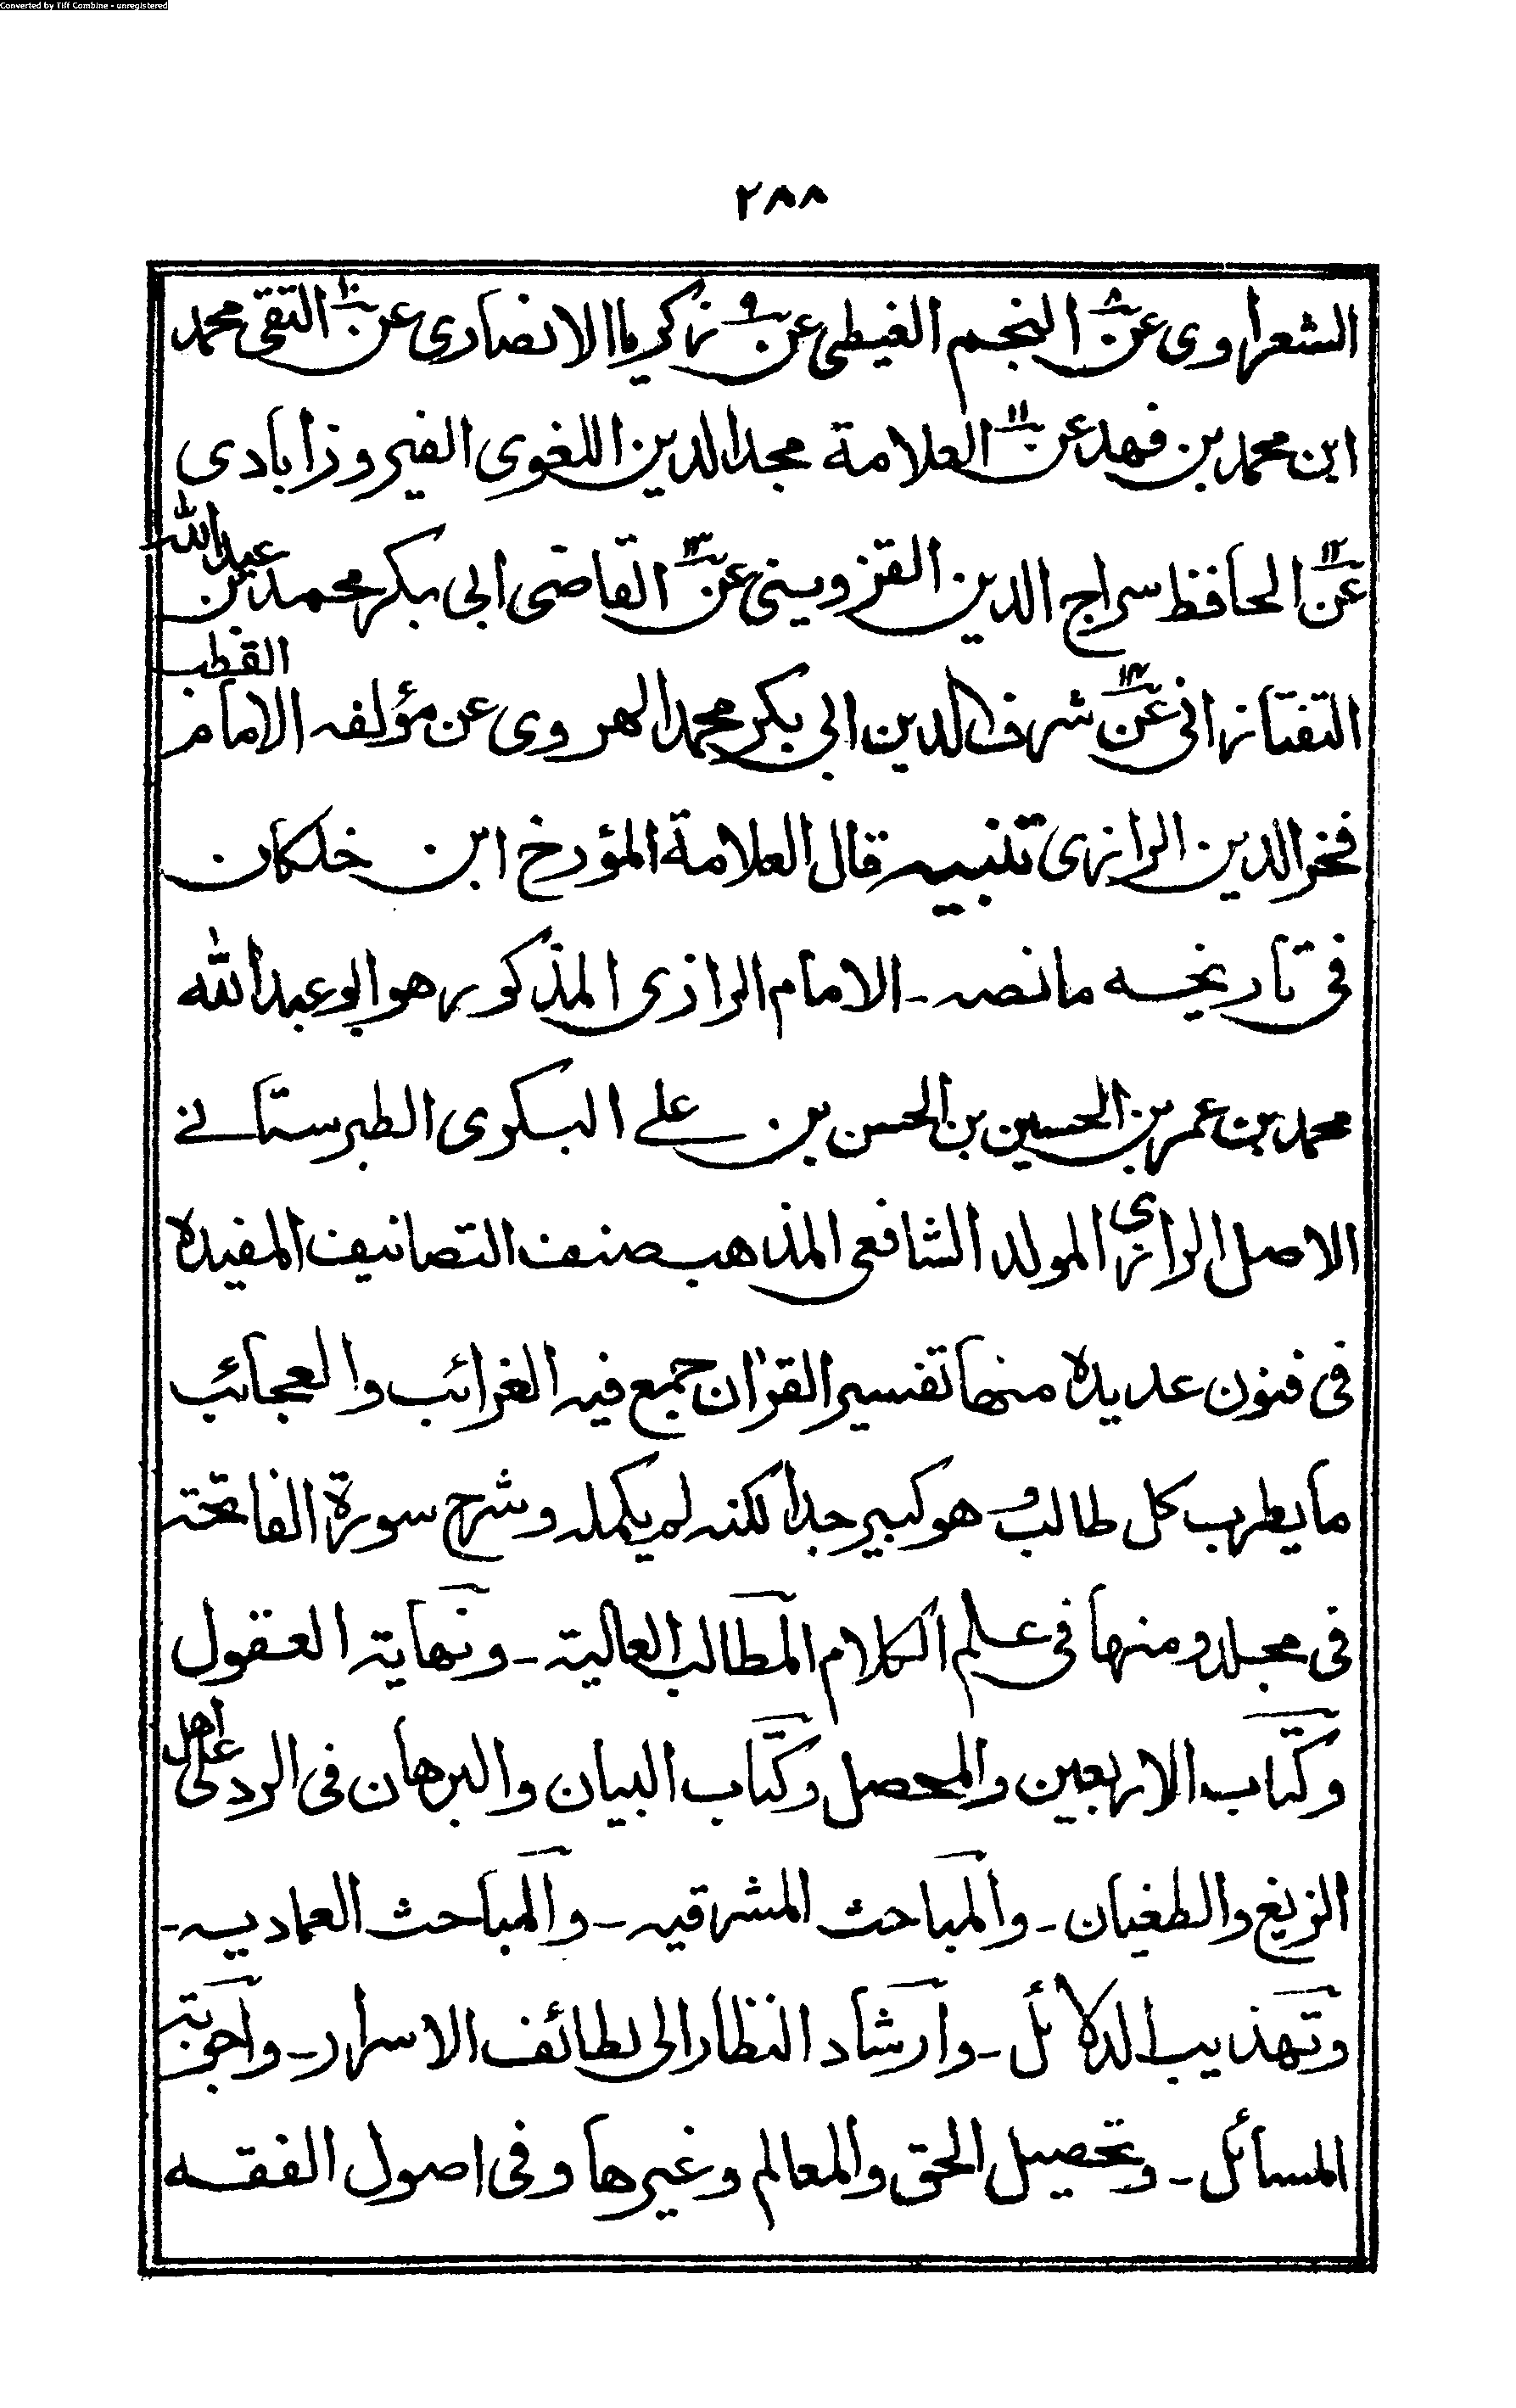 Converted by Tiff Combine - unregistered
٢٨٨
الشعراوى عن ٨ النجم الغيطى عن ٩ زكريا الانصارى عن ١٠ التقى محمد
ابن محمد بن فهد عن ١١ العلامة مجد الدين اللغوى الفيروزابادى
عن ١٢ الحافظ سراج الدين القزوينى عن ١٣ القاضى ابى بكر محمد بن عبد الله
التفتازانى عن ١٤ شرف الدين ابى بكر محمد الهروى عن مؤلفه الامام القطب
فخر الدين الرازى تنبيه قال العلامة المؤرخ ابن خلكان
فى تاريخه مانصه - الامام الرازى المذكور هو ابو عبد الله
محمد بن عمر بن الحسين بن الحسن بن على البكوى الطبرستانے
الاصل الرازى المولد الشافعى المذهب صنف التصانيف المفيده
فى فنون عديده منها تفسير القرٰان جمع فيه الغرائب والعجائب
ما يطرب كل طالب و هو كبير جدا لكنه لم يكمله و شرح سورة الفاتحة
فى مجلد و منها فى علم الكلام المطالب العالية - و نهاية العقول
و كتاب الاربعين والمحصل و كتاب البيان والبرهان فى الرد على اهل
الزيغ والطغيان - والمباحث المشرقيه - والمباحث العماديه -
وتهذيب الدلائل - وارشاد النظار الى لطائف الاسرار - واجوبة
المسائل - وتحصيل الحق والمعالم وغيرها وفى اصول الفقه